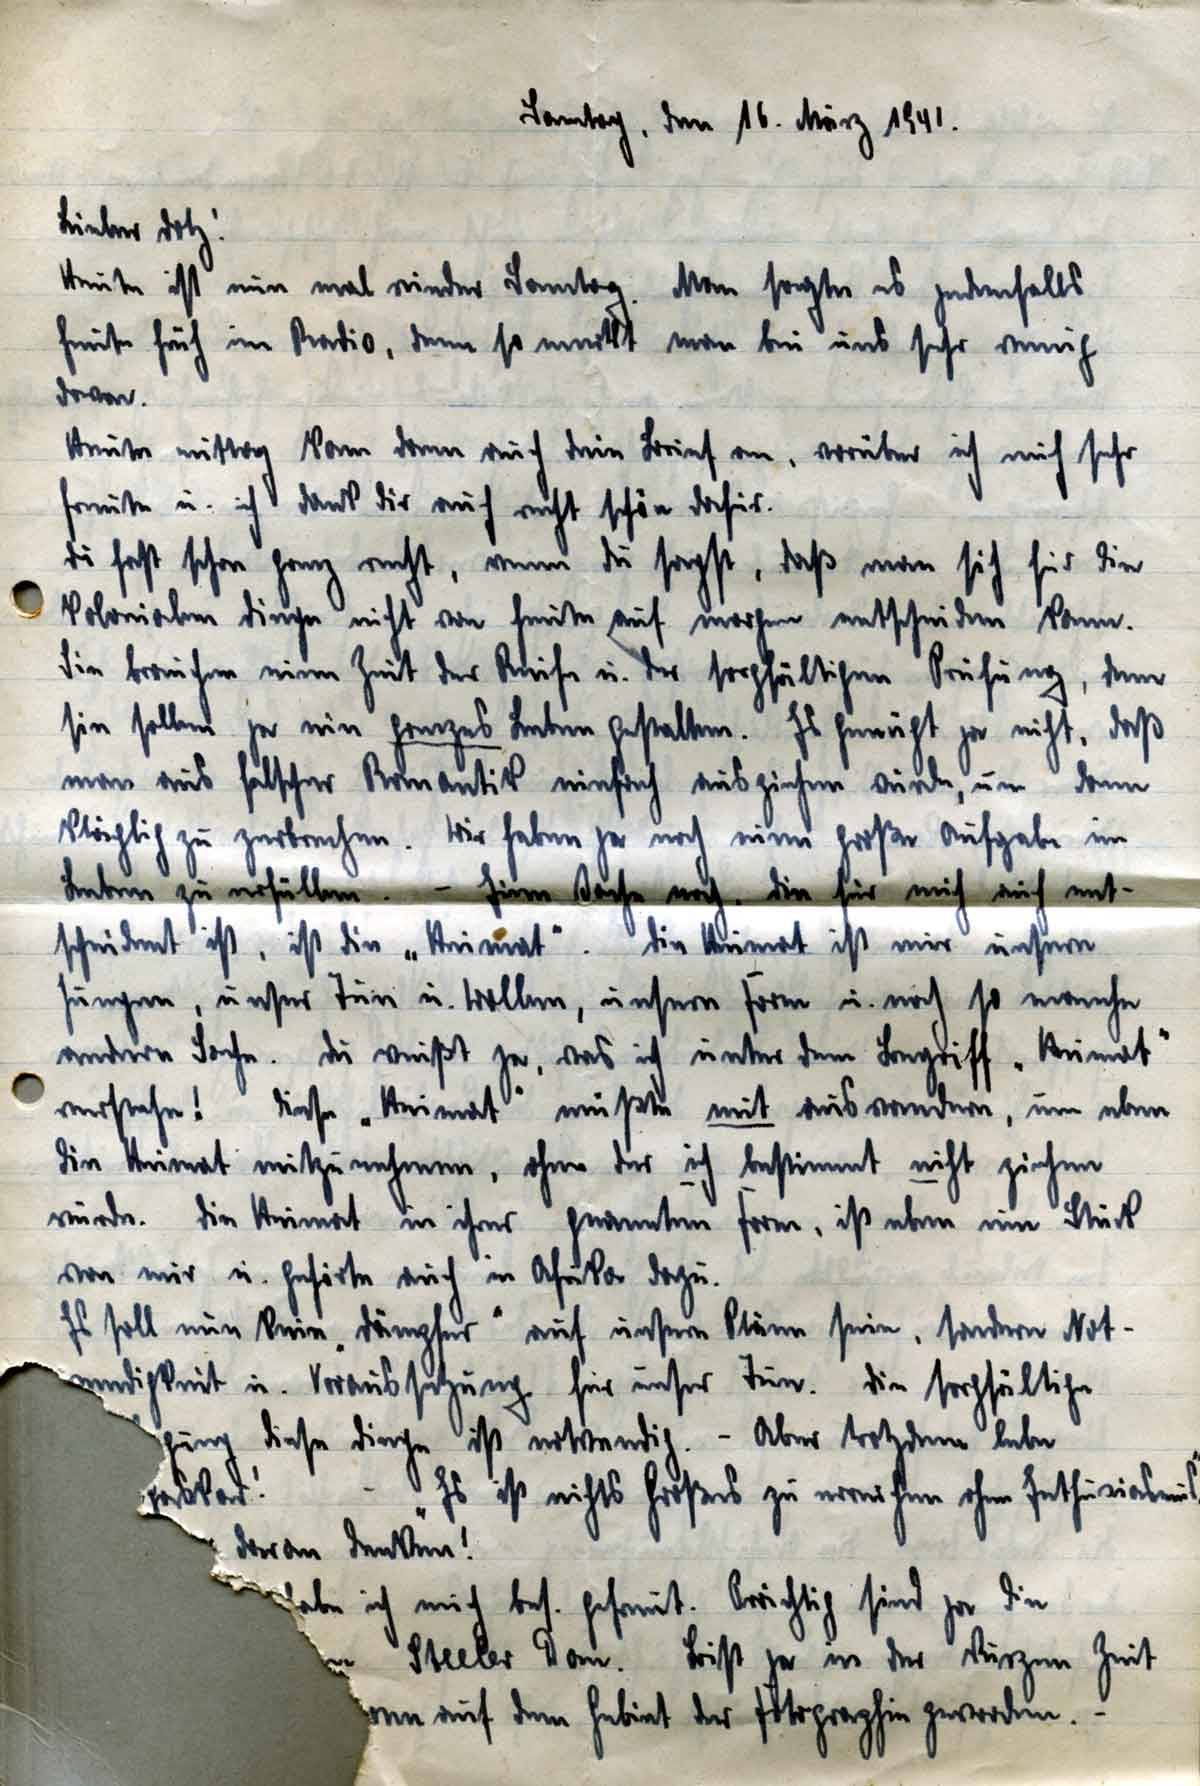 Sonntag, den 16. März 1941.
Lieber Dolz!
Heute ist nun mal wieder Sonntag. Man sagte es jedenfalls
heute früh im Radio, denn so merkt man bei uns sehr wenig
davon.
Heute mittag kam dann auch dein Brief an, worüber ich mich sehr
freute u. ich dank dir auch recht schön dafür.
Du hast schon ganz recht, wenn du sagst, daß man sich für die
kolonialen Dinge nicht von heute auf morgen entscheiden kann.
Sie brauchen eine Zeit der Reife u. der sorgfältigen Prüfung, denn
sie sollen ja ein ganzes Leben gestalten. Es genügt ja nicht, daß
man aus falscher Romantik einfach ausziehen würde, um dann
kläglich zu zerbrechen. Wir haben ja noch eine große Aufgabe im
Leben zu erfüllen. - Eine Sache noch, die für mich auch ent-
scheident ist, ist die „Heimat". Die Heimat ist mir unsere
Jungen, unser Tun u. Wollen, unsere Form u. noch so manche
andere Sache. Du weißt ja, was ich unter dem Begriff „Heimat"
verstehe! Diese „Heimat" müßte mit auswandern, um eben
die Heimat mitzunehmen, ohne der ich bestimmt nicht ziehen
würde. Die Heimat in ihrer genannten Form, ist eben ein Stück
von mir u. gehörte auch in Afrika dazu.
Es soll nun kein „Dämpfer" auf unsere Pläne sein, sondern Not-
wendigkeit u. Voraussetzung für unser Tun. Die sorgfältige
gung diese Dinge ist notwendig. - Aber trotzdem lebe
gaskar! - „Es ist nichts Großes zu erreichen ohne Enthusiasmus"
daran denken!
habe ich mich bes. gefreut. Prächtig sind ja die
Steeler Dom. Bist ja in der kurzen Zeit
ann auf dem Gebiet der Fotographie geworden. -